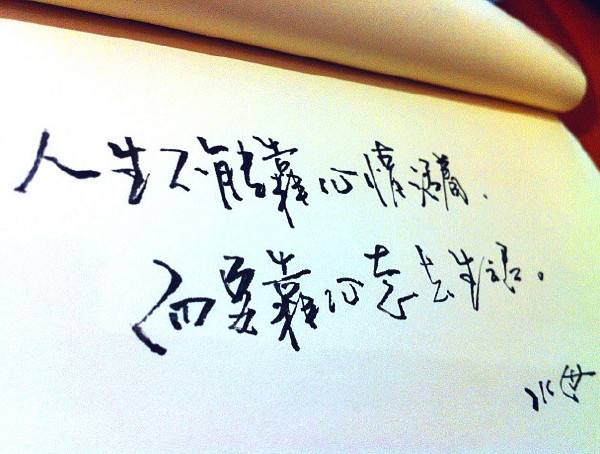 人生不能靠心情活着.
而要靠心态去生活。